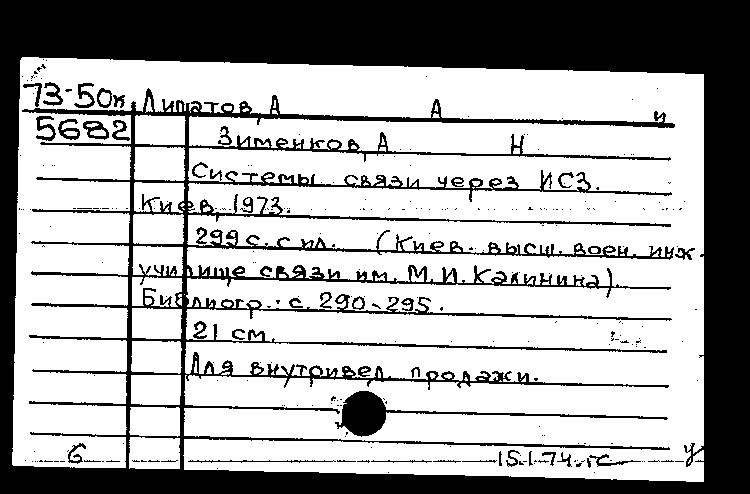 73-50к Липатов, А А и
5682 Зименков, А Н
Системы связи через ИСЗ.
Киев, 1973.
299 с. с ил. (Киев. высш. воен. инж.
училище связи им. М.И. Калинина).
Библиогр.: с. 290-295.
21 см.
Для внутривед. продажи.
6 15.1.74. гс У